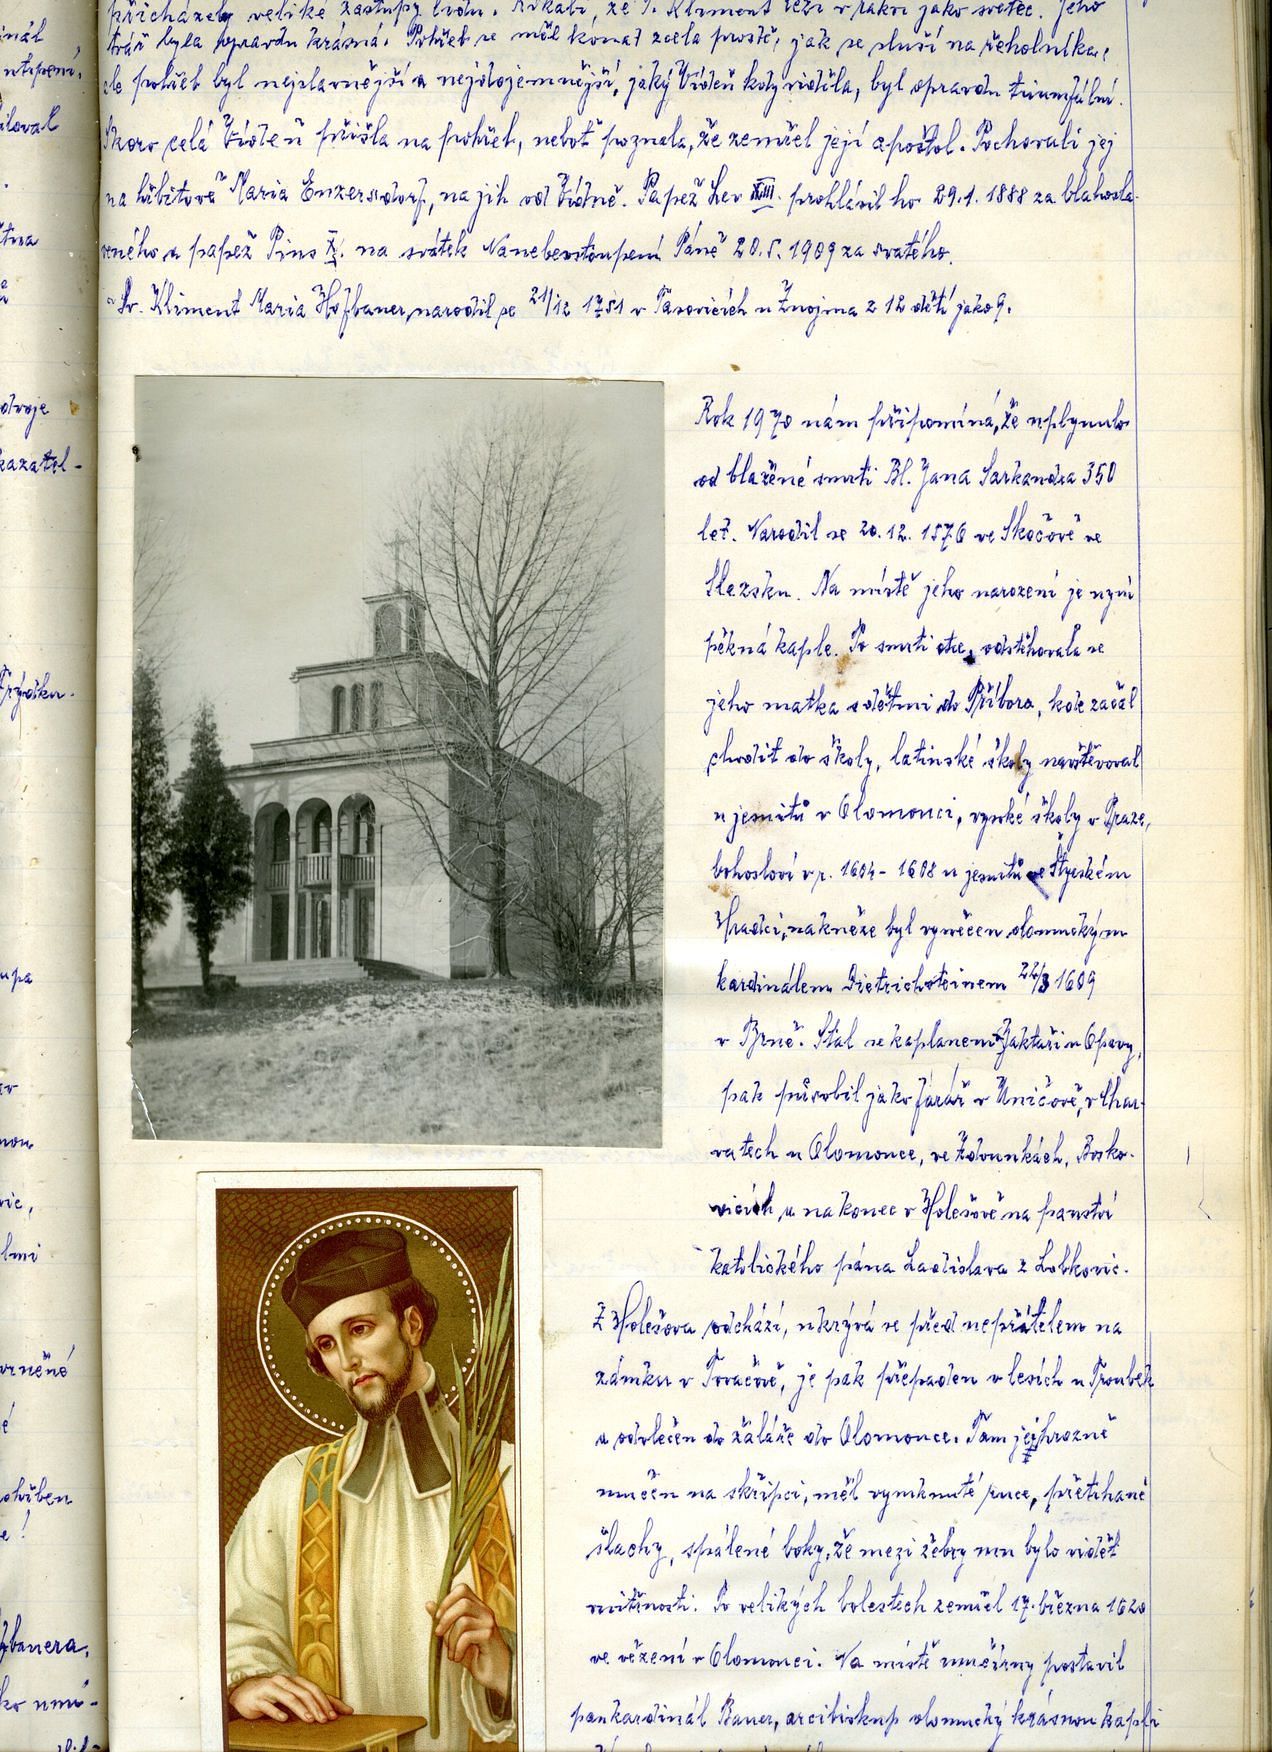 přicházely veliké zástupy lidu. Říkali, že P. Kliment leží v rakvi jako světec. Jeho
tvář byla opravdu krásná. Pohřeb se měl konat zcela prostě, jak se sluší na řeholníka,
ale pohřeb byl nejslavnější a nejdojemnější, jaký Vídeň kdy viděla, byl opravdu triumfální.
Skoro celá Vídeň přišla na pohřeb, neboť poznala, že zemřel její apoštol. Pochovali jej
na hřbitově Maria Enzersdorf, na jih od Vídně. Papež Lev XIII. prohlásil ho 29.1. 1888 za blahosla-
veného a papež Pius X. na svátek Nanebevstoupení Páně 20.5. 1909 za svatého.
Sv. Kliment Maria Hofbauer narodil se 21/12 1751 v Tasovicích u Znojma z 12 dětí jako 9.
Rok 1970 nám připomíná, že uplynulo
od blažené smrti Bl. Jana Sarkandra 350
let. Narodil se 20.12. 1576 ve Skočově ve
Slezsku. Na místě jeho narození je nyní
pěkná kaple. Po smrti otce, odstěhovala se
jeho matka s dětmi do Příbora, kde začal
chodit do školy, latinské školy navštěvoval
u jesuitů v Olomouci, vysoké školy v Praze,
bohosloví v r. 1604 - 1608 u jesuitů ve Štyrském
Hradci, na kněze byl vysvěcen olomuckým
kardinálem Dietrichsteinem 22/3 1609
v Brně. Stal se kaplanem v Jaktaři u Opavy,
pak působil jako farář v Uničově, v Char-
vatech u Olomouce, ve Zdounkách, Bosko-
vicích a nakonec v Holešově na panství
katolického pána Ladislava z Lobkovic.
Z Holešova odchází, ukrývá se před nepřátelem na
zámku v Tovačově, je pak přepaden v lesích u Troubek
a odvlečen do žaláře do Olomouce. Tam je hrozně
mučen na skřipci, měl vymknuté ruce, přetrhané
šlachy, spálené boky, že mezi žebry mu bylo vidět
vnitřnosti. Po velikých bolestech zemřel 17. března 1620
ve vězení v Olomouci. Na místě mučírny postavil
pan kardinál Bauer, arcibiskup olomucký krásnou kapli